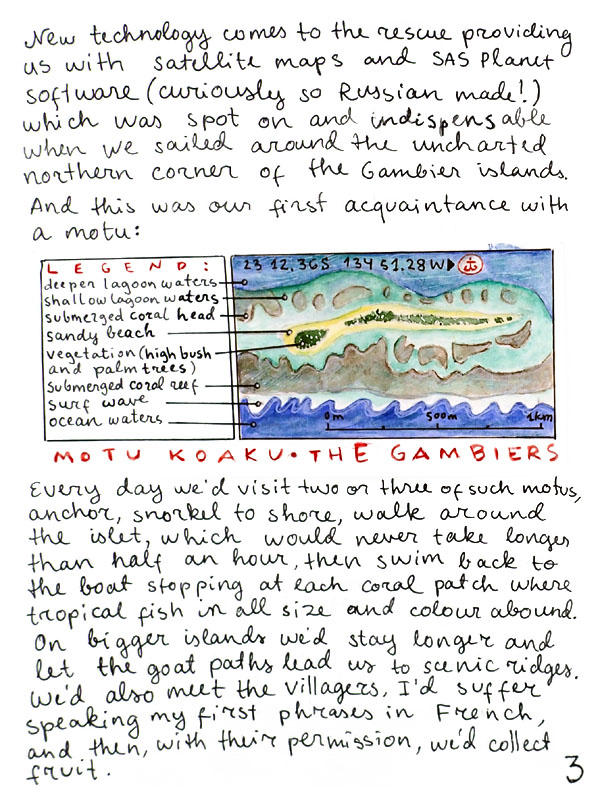 New technology comes to the rescue providing
us with satellite maps and SAS Planet
software (curiously so Russian made!)
which was spot on and indispensable
when we sailed around the uncharted
northern corner of the Gambier islands.
And this was our first acquaintance with
a motu:
LEGEND:
deeper lagoon waters
shallow lagoon waters
submerged coral head
sandy beach
vegetation (high bush
and palm trees)
submerged coral reef
surf wave
ocean waters
23 12.36S 134 51.28W
0m 500m 1km
MOTU KOAKU • THE GAMBIERS
Every day we'd visit two or three of such motus,
anchor, snorkel to shore, walk around
the islet, which would never take longer
than half an hour, then swim back to
the boat stopping at each coral patch where
tropical fish in all size and colour abound.
On bigger islands we'd stay longer and
let the goat paths lead us to scenic ridges.
We'd also meet the villagers, I'd suffer
speaking my first phrases in French,
and then, with their permission, we'd collect
fruit.
3